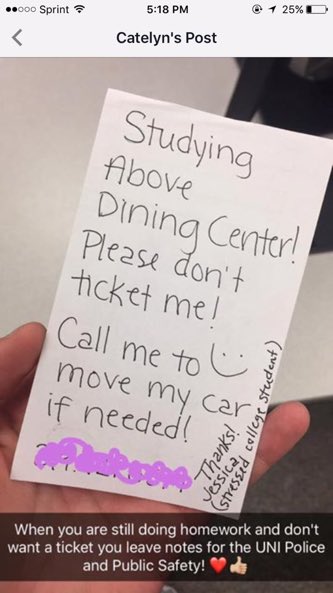 Sprint 5:18 PM 25%
Catelyn's Post
Studying
Above
Dining Center!
Please don't
ticket me!
Call me to
move my car
if needed!
Thanks!
Jessica
(stressed college student)
When you are still doing homework and don't
want a ticket you leave notes for the UNI Police
and Public Safety! ❤️👍🏼